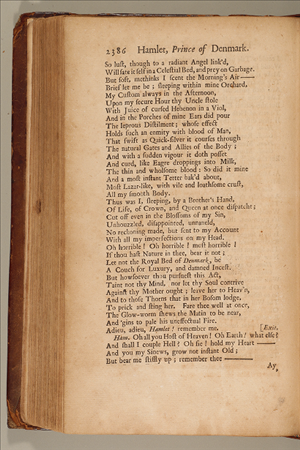 2386 Hamlet, Prince of Denmark.
So lust, though to a radiant Angel link'd,
Will sate it self in a Celestial Bed, and prey on Garbage.
But soft, methinks I scent the Morning's Air——
Brief let me be; sleeping within mine Orchard,
My Custom always in the Afternoon,
Upon my secure Hour thy Uncle stole
With Juice of cursed Hebenon in a Viol,
And in the Porches of mine Ears did pour
The leperous Distilment; whose effect
Holds such an enmity with blood of Man,
That swift as Quick-silver it courses through
The natural Gates and Allies of the Body;
And with a sudden vigour it doth posset
And curd, like Eagre droppings into Milk,
The thin and wholsome blood: So did it mine
And a most instant Tetter bak'd about,
Most Lazar-like, with vile and loathsome crust,
All my smooth Body.
Thus was I, sleeping, by a Brother's Hand,
Of Life, of Crown, and Queen at once dispatcht;
Cut off even in the Blossoms of my Sin,
Unhouzzled, disappointed, unnaneld,
No reckoning made, but sent to my Account
With all my imperfections on my Head.
Oh horrible! Oh horrible! most horrible!
If thou hast Nature in thee, bear it not;
Let not the Royal Bed of Denmark, be
A Couch for Luxury, and damned Incest.
But howsoever thou pursuest this Act,
Taint not thy Mind, nor let thy Soul contrive
Against thy Mother ought; leave her to Heav'n,
And to those Thorns that in her Bosom lodge,
To prick and sting her. Fare thee well at once,
The Glow-worm shews the Matin to be near,
And 'gins to pale his uneffectual Fire.
Adieu, adieu, Hamlet! remember me. [Exit.
Ham. Oh all you Host of Heaven! Oh Earth! what else?
And shall I couple Hell? Oh fie! hold my Heart——
And you my Sinews, grow not instant Old;
But bear me stiffly up; remember thee——
Ay,